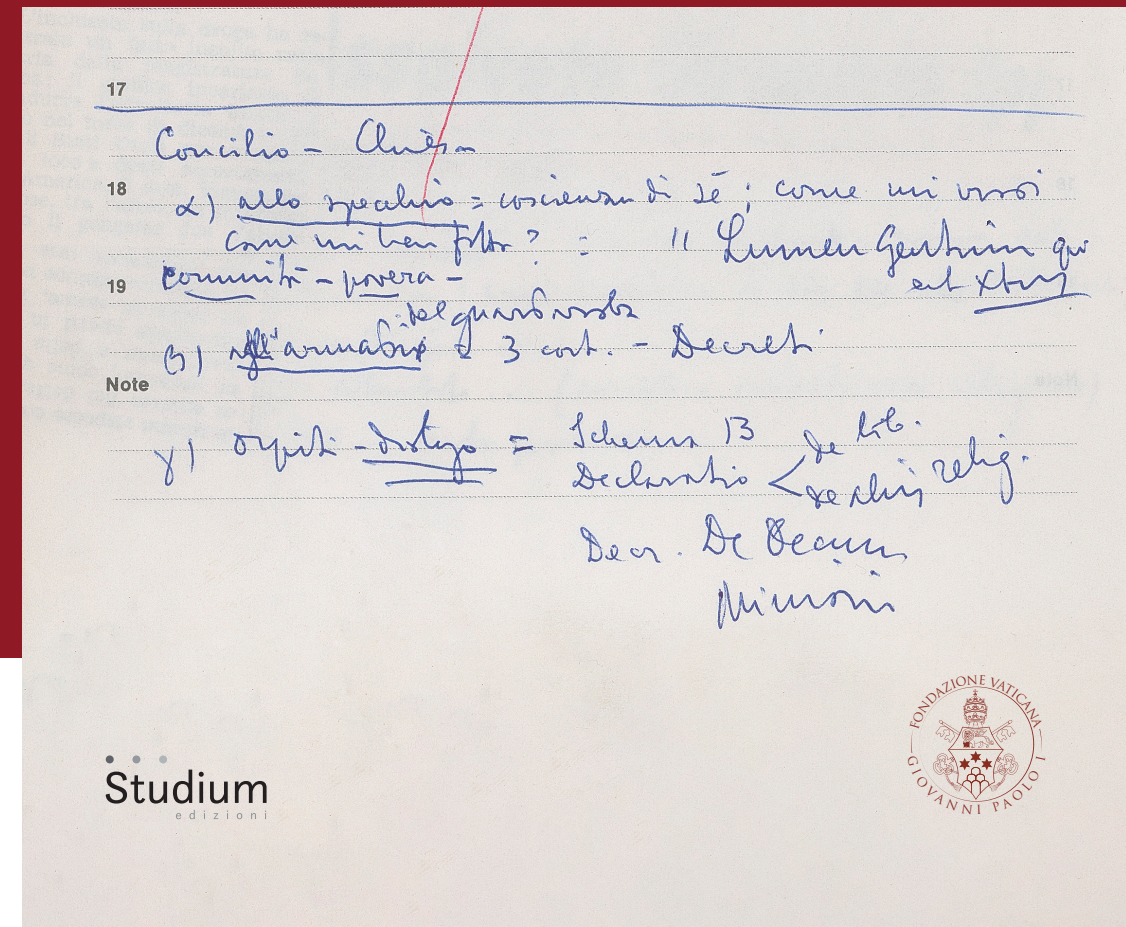 17
Concilio - Chiesa
18
α) allo specchio = coscienza di sé ; come mi vuoi
come mi ha fatto ? = " Lumen Gentium qui
19
comunità - povera - est Xtus
= del guardaroba
β) all'armadio = 3 cost. - Decreti
Note
γ) ospiti - = Schema 13 de lib.
Declaratio < de aliis relig.
Decr. De Oecum
Missioni
Studium
edizioni
FONDAZIONE VATICANA
GIOVANNI PAOLO I